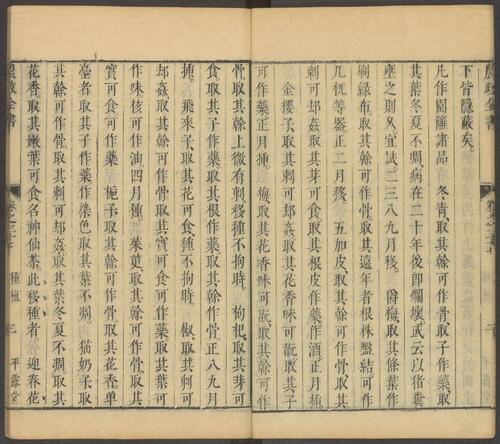 下皆隱蔽矣。
凡作園籬諸品 冬青、取其幹可作骨、取子作藥、取
其葉冬夏不凋、病在二十年後卽爛壞、武云以猪糞
壅之則久、宜試。二三八九月移。 爵梅、取其條葉作
刷綠布、取其幹可作骨、取其遠年者根株盤結可作
几杌等器、正二月移。 五加皮、取其幹可作骨、取其
刺可却姦、取其芽可食、取其根皮作藥作酒、正月揷。
金櫻子、取其刺可却姦、取其花香味可翫、取其子
可作藥、正月揷。 梅、取其花香味可翫、取其幹可作
骨、取其幹上微有刺、移種不拘時。 枸杞、取其芽可
食、取其子作藥、取其根作藥、取其幹作骨。正八九月
揷。 飛來子、取其花可食、種不拘時。 椒、取其刺可
却姦、取其幹可作骨、取其實可食可作藥、取其可
作味、核可作油、四月種。 茱萸、取其幹可作骨、取其
實可食可作藥。 梔子、取其幹可作骨、取其花香、單
臺者取其子作藥作染色、取其葉不凋。 猫奶子、取
其幹可作骨、取其刺可却姦、取其葉冬夏不凋、取其
花香、取其嫩葉可食、名神仙茶、此移種者。 迎春花、
農政全書
卷之三十七
種植
三
平露堂